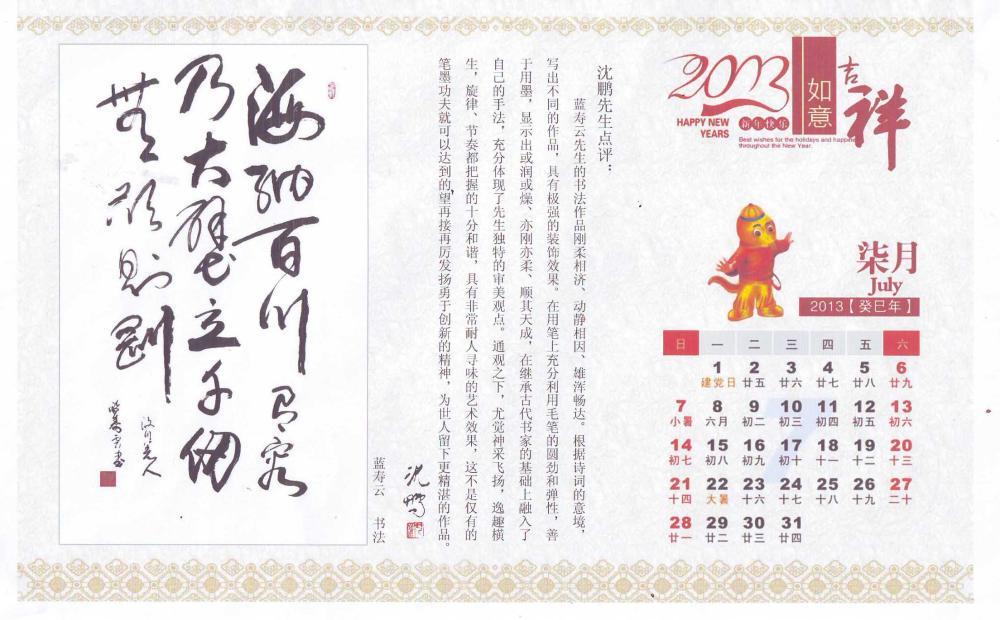 海纳百川有容
乃大壁立千仞
无欲则刚
汶川羌人
蓝寿云书
沈鹏先生点评：
蓝寿云先生的书法作品刚柔相济、动静相因、雄浑畅达。根据诗词的意境，
写出不同的作品，具有极强的装饰效果。在用笔上充分利用毛笔的圆劲和弹性，善
于用墨，显示出或润或燥、亦刚亦柔、顺其天成，在继承古代书家的基础上融入了
自己的手法，充分体现了先生独特的审美观点。通观之下，尤觉神采飞扬，逸趣横
生，旋律、节奏都把握的十分和谐，具有非常耐人寻味的艺术效果，这不是仅有的
笔墨功夫就可以达到的望再接再厉发扬勇于创新的精神，为世人留下更精湛的作品。
沈鹏
蓝寿云 书法
2013
HAPPY NEW
YEARS
新年快乐
吉祥
如意
Best wishes for the holidays and happine
throughout the New Year.
柒月
July
2013【癸巳年】
日 一 二 三 四 五 六
1 2 3 4 5 6
建党日 廿五 廿六 廿七 廿八 廿九
7 8 9 10 11 12 13
小暑 六月 初二 初三 初四 初五 初六
14 15 16 17 18 19 20
初七 初八 初九 初十 十一 十二 十三
21 22 23 24 25 26 27
十四 大暑 十六 十七 十八 十九 二十
28 29 30 31
廿一 廿二 廿三 廿四
7